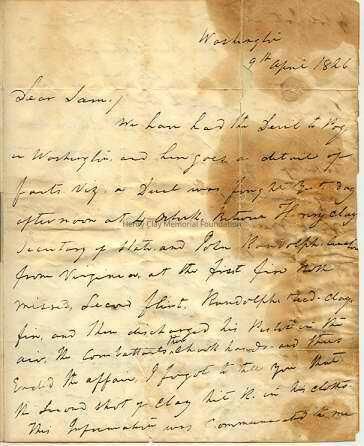 Washington
9th April 1826
Dear Sam,
We have had the Devil to Pay
in Washington and here goes a detail of
facts Viz. a Duel was fought yesterday
afternoon at 4 oclock, between Henry Clay
Henry Clay Memorial Foundation
Secretary of State and John Randolph
from Virginia, at the first fire both
missed, Second Randolph Clay
fire, and then discharged his Pistol in the
air, the Combattants then Shook hands and thus
Ended the affair, I forgot to tell you that
the Second shot of Clay hit R. in his cloths
This Information was Communicated to me